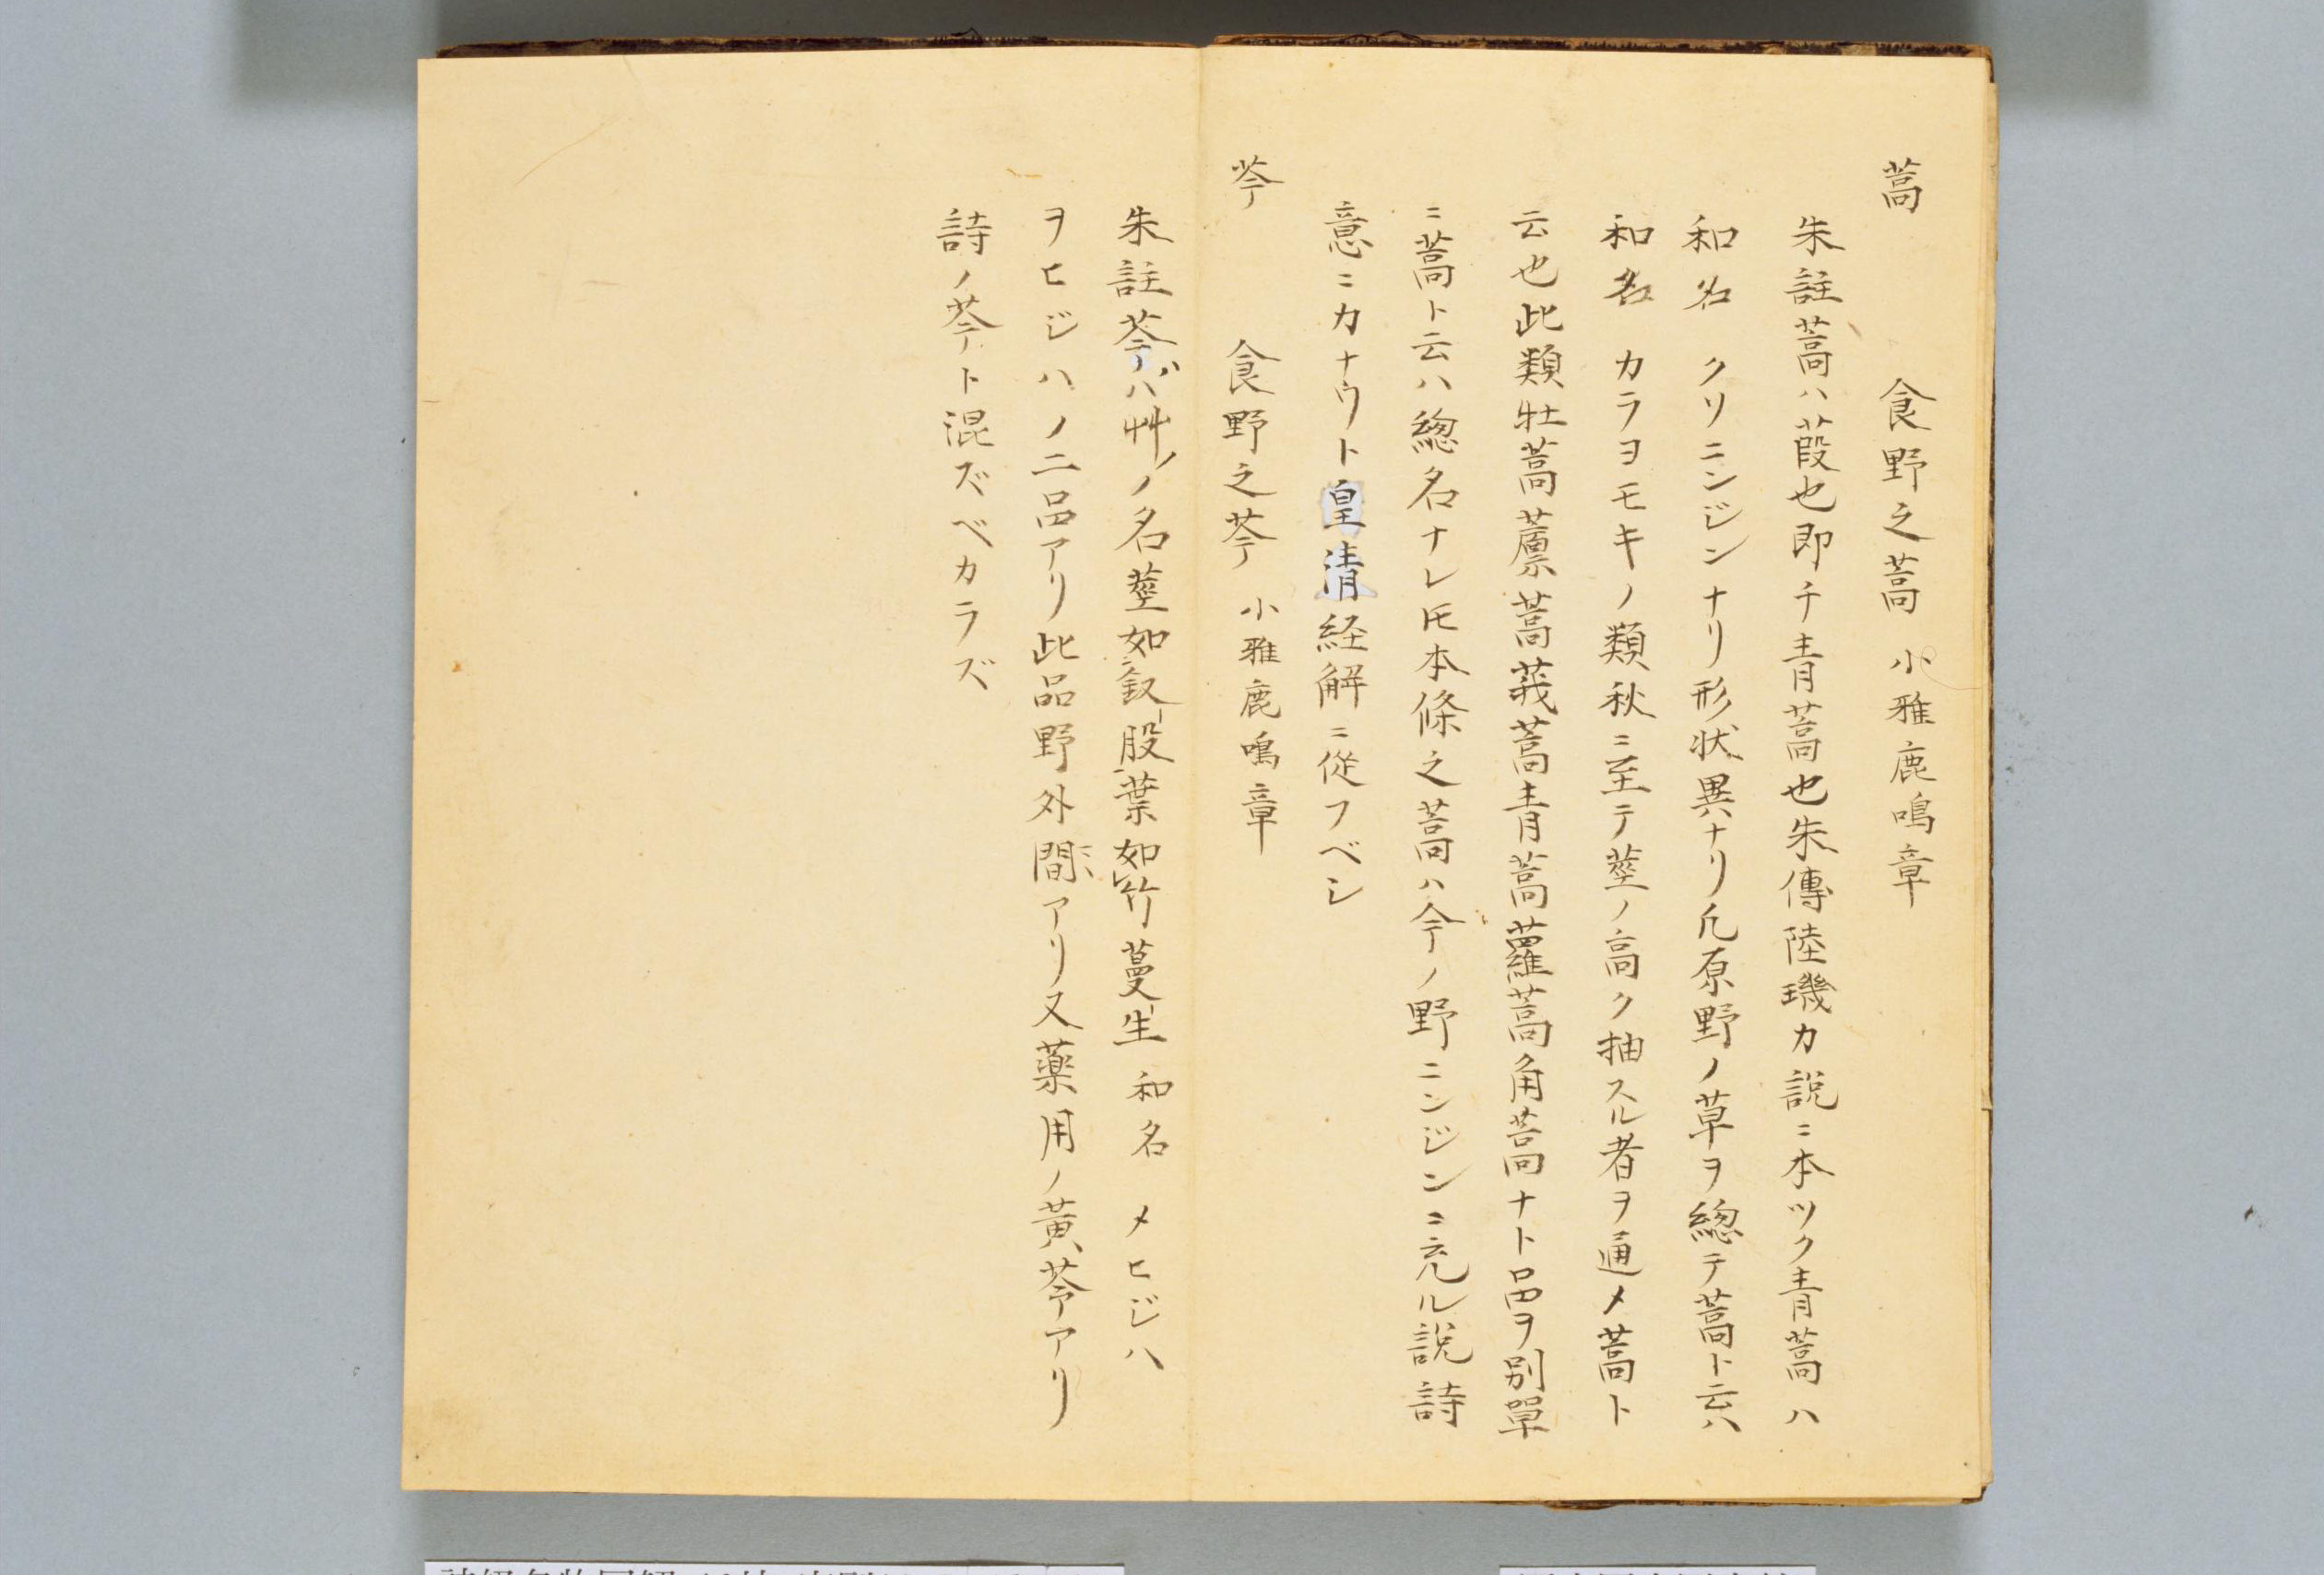 蒿　食野之蒿　小雅鹿鳴章
朱註蒿ハ菣也即チ青蒿也朱傳陸璣カ説ニ本ツク青蒿ハ
和名　クソニンジンナリ形状異ナリ凡原野ノ草ヲ總テ蒿ト云ハ
和名　カラヨモキノ類秋ニ至テ莖ノ高ク抽スル者ヲ通メ蒿ト
云也此類牡蒿藨蒿莪蒿青蒿蘿蒿角蒿ナト品ヲ別單
ニ蒿ト云ハ總名ナレ𪜈本條之蒿ハ今ノ野ニンジンニ充ル説詩
意ニカナウト皇清経解ニ従フベシ
芩　食野之芩　小雅鹿鳴章
朱註芩ハ艸ノ名莖如釵股葉如竹蔓生　和名　メヒジハ
ヲヒジハノ二品アリ此品野外間アリ又藥用ノ黄芩アリ
詩ノ芩ト混ズベカラズ